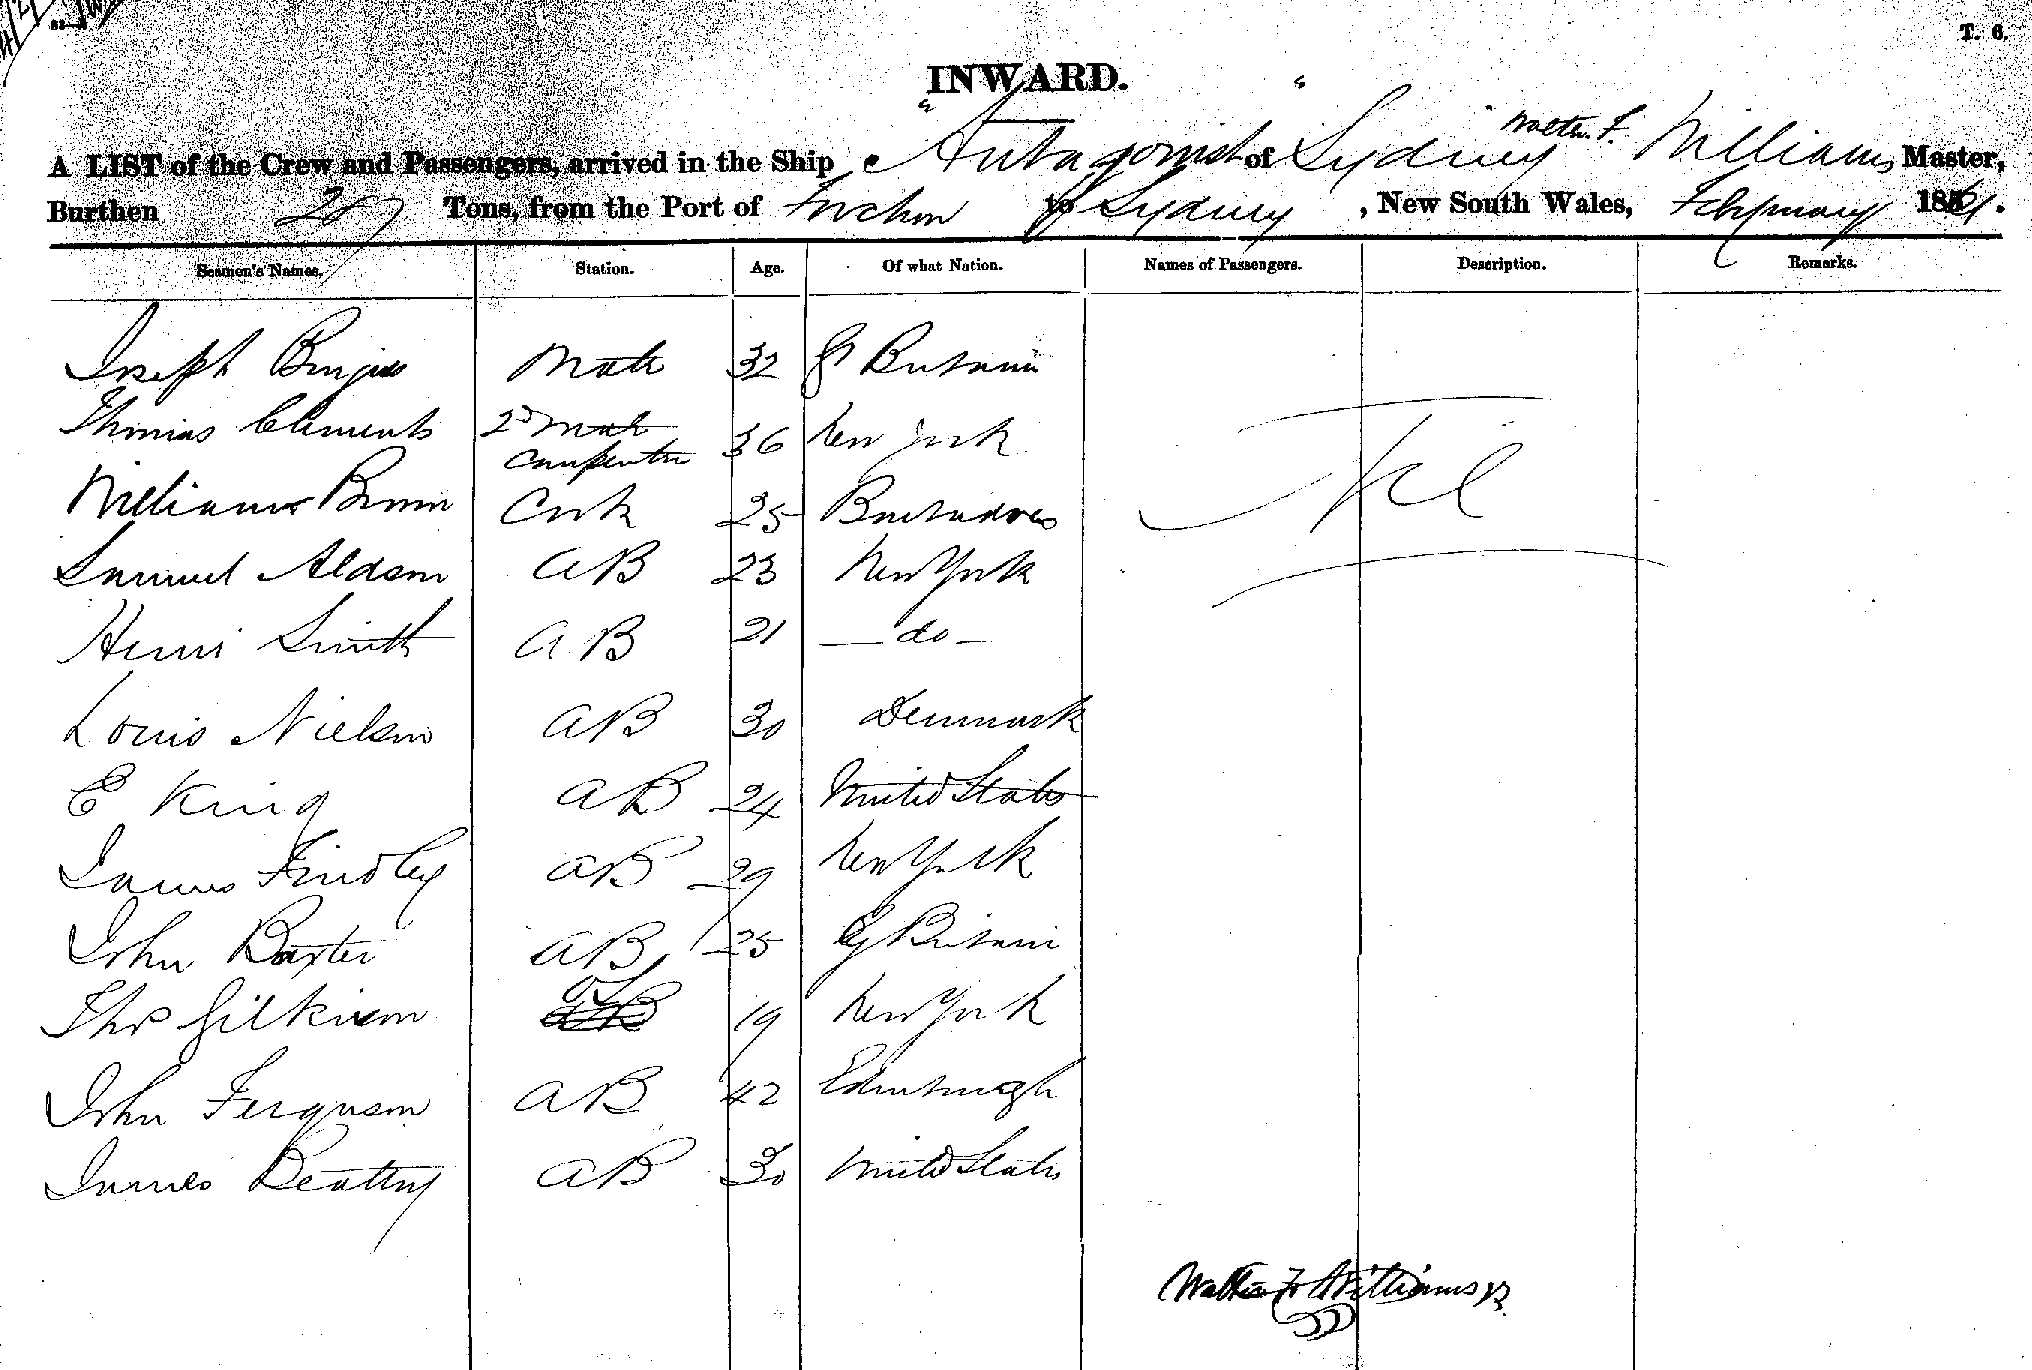 T. 6.
INWARD.
A LIST of the Crew and Passengers, arrived in the Ship "Antagonist" of Sydney Walter F. Williams, Master,
Burthen 287 Tons, from the Port of to Sydney, New South Wales, February 1861.
Seamen's Names. Station. Age. Of what Nation. Names of Passengers. Description. Remarks.
Joseph Burgess Mate 32 Gt Britain
Thomas Clements 2d Mate Carpenter 36 New York
Nil
Williams Brown Cook 25 Barbadoes
Samuel Aldson AB 23 New York
Henri Smith AB 21 — do —
Louis Nielson AB 30 Denmark
E King AB 24 United States
James Findley AB 29 New York
John Baxter AB 25 Gt Britain
Thos Gilkison OS 19 New York
John Ferguson AB 42 Edinburgh
James Beattny AB 30 United States
Walter F Williams Jr